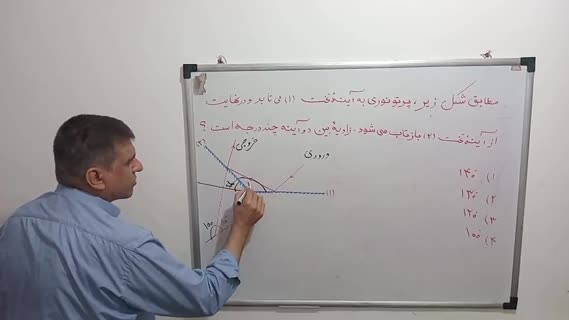 مطابق شکل زیر، پرتو نوری به آینهٔ تخت (۱) می تابد و در نهایت
از آینهٔ تخت (۲) بازتاب می شود. زاویهٔ بین دو آینه چند درجه است ؟
(۲)
خروجی
ورودی
(۱)
۱) ۱۴۰°
۲) ۱۳۰°
۳) ۱۲۰°
۴) ۱۰۰°
۱۰۰